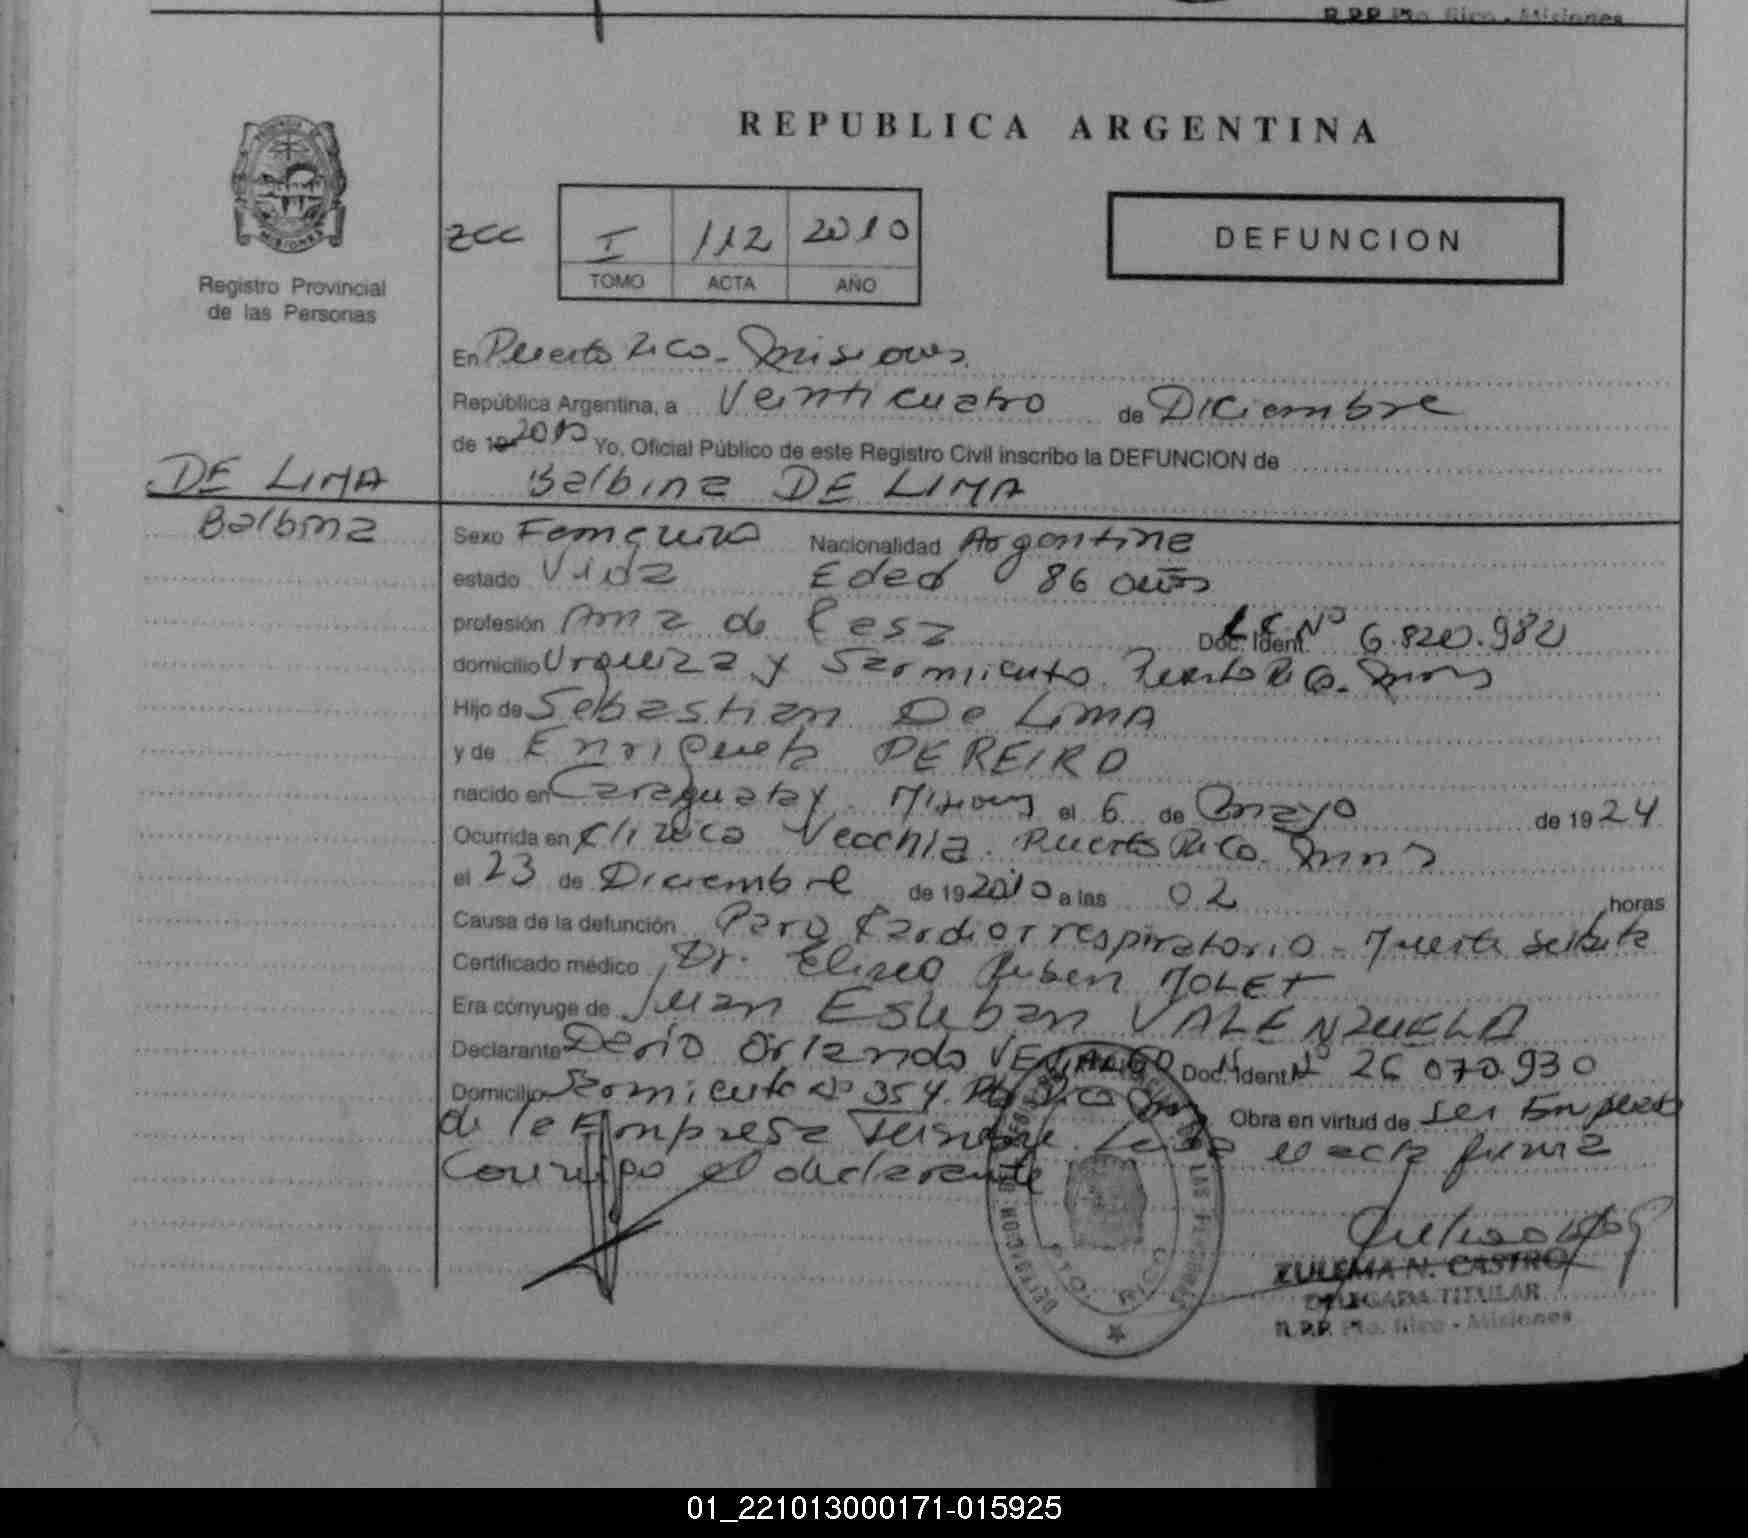 R.P.P. Pto. Rico - Misiones
REPUBLICA ARGENTINA
MISIONES
Registro Provincial
de las Personas
zcc
I 112 2010
TOMO ACTA AÑO
DEFUNCION
En Puerto Rico - Misiones
República Argentina, a Veinticuatro de Diciembre
de 19 2010 Yo, Oficial Público de este Registro Civil inscribo la DEFUNCION de
DE LIMA
Balbina
Balbina DE LIMA
Sexo Femenino Nacionalidad Argentina
estado Vida Edad 86 años
profesión Ama de Casa Doc. Ident. L.C. Nº 6.820.982
domicilio Urquiza y Sarmiento. Puerto Rico. Mnes
Hijo de Sebastian De LIMA
y de Enriqueta PEREIRO
nacido en Caraguatay. Misiones el 6 de Mayo de 1924
Ocurrida en Clinica Vecchia. Puerto Rico. Mnes
el 23 de Diciembre de 19 2010 a las 02 horas
Causa de la defunción Paro Cardiorrespiratorio - Muerte Subita
Certificado médico Dr. Eliseo Ruben MOLET
Era cónyuge de Juan Esteban VALENZUELA
Declarante Dario Orlando Doc. Ident. Nº 26 070.930
Domicilio Sarmiento Nº 354. Pto Rico Mnes Obra en virtud de ser Empleado
de la Empresa Funebre. Leida el acta firma
conmigo el declarante
DELEGACION REGISTRO DE LAS PERSONAS
PTO. RICO
ZULEMA N. CASTRO
DELEGADA TITULAR
R.P.P. Pto. Rico - Misiones
01_221013000171-015925